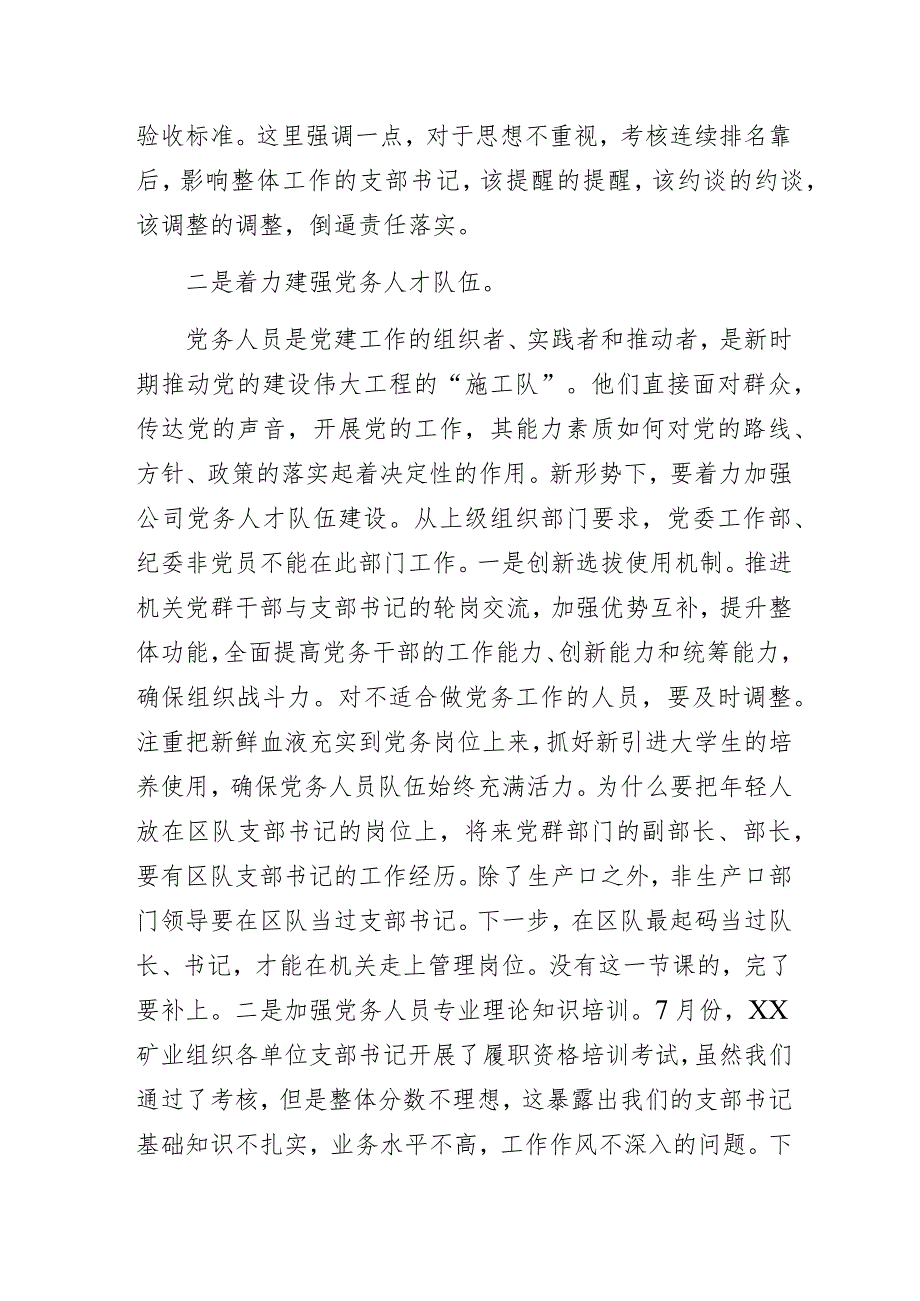 验收标准。这里强调一点，对于思想不重视，考核连续排名靠
后，影响整体工作的支部书记，该提醒的提醒，该约谈的约谈，
该调整的调整，倒逼责任落实。
二是着力建强党务人才队伍。
党务人员是党建工作的组织者、实践者和推动者，是新时
期推动党的建设伟大工程的“施工队”。他们直接面对群众，
传达党的声音，开展党的工作，其能力素质如何对党的路线、
方针、政策的落实起着决定性的作用。新形势下，要着力加强
公司党务人才队伍建设。从上级组织部门要求，党委工作部、
纪委非党员不能在此部门工作。一是创新选拔使用机制。推进
机关党群干部与支部书记的轮岗交流，加强优势互补，提升整
体功能，全面提高党务干部的工作能力、创新能力和统筹能力，
确保组织战斗力。对不适合做党务工作的人员，要及时调整。
注重把新鲜血液充实到党务岗位上来，抓好新引进大学生的培
养使用，确保党务人员队伍始终充满活力。为什么要把年轻人
放在区队支部书记的岗位上，将来党群部门的副部长、部长，
要有区队支部书记的工作经历。除了生产口之外，非生产口部
门领导要在区队当过支部书记。下一步，在区队最起码当过队
长、书记，才能在机关走上管理岗位。没有这一节课的，完了
要补上。二是加强党务人员专业理论知识培训。7月份，XX
矿业组织各单位支部书记开展了履职资格培训考试，虽然我们
通过了考核，但是整体分数不理想，这暴露出我们的支部书记
基础知识不扎实，业务水平不高，工作作风不深入的问题。下